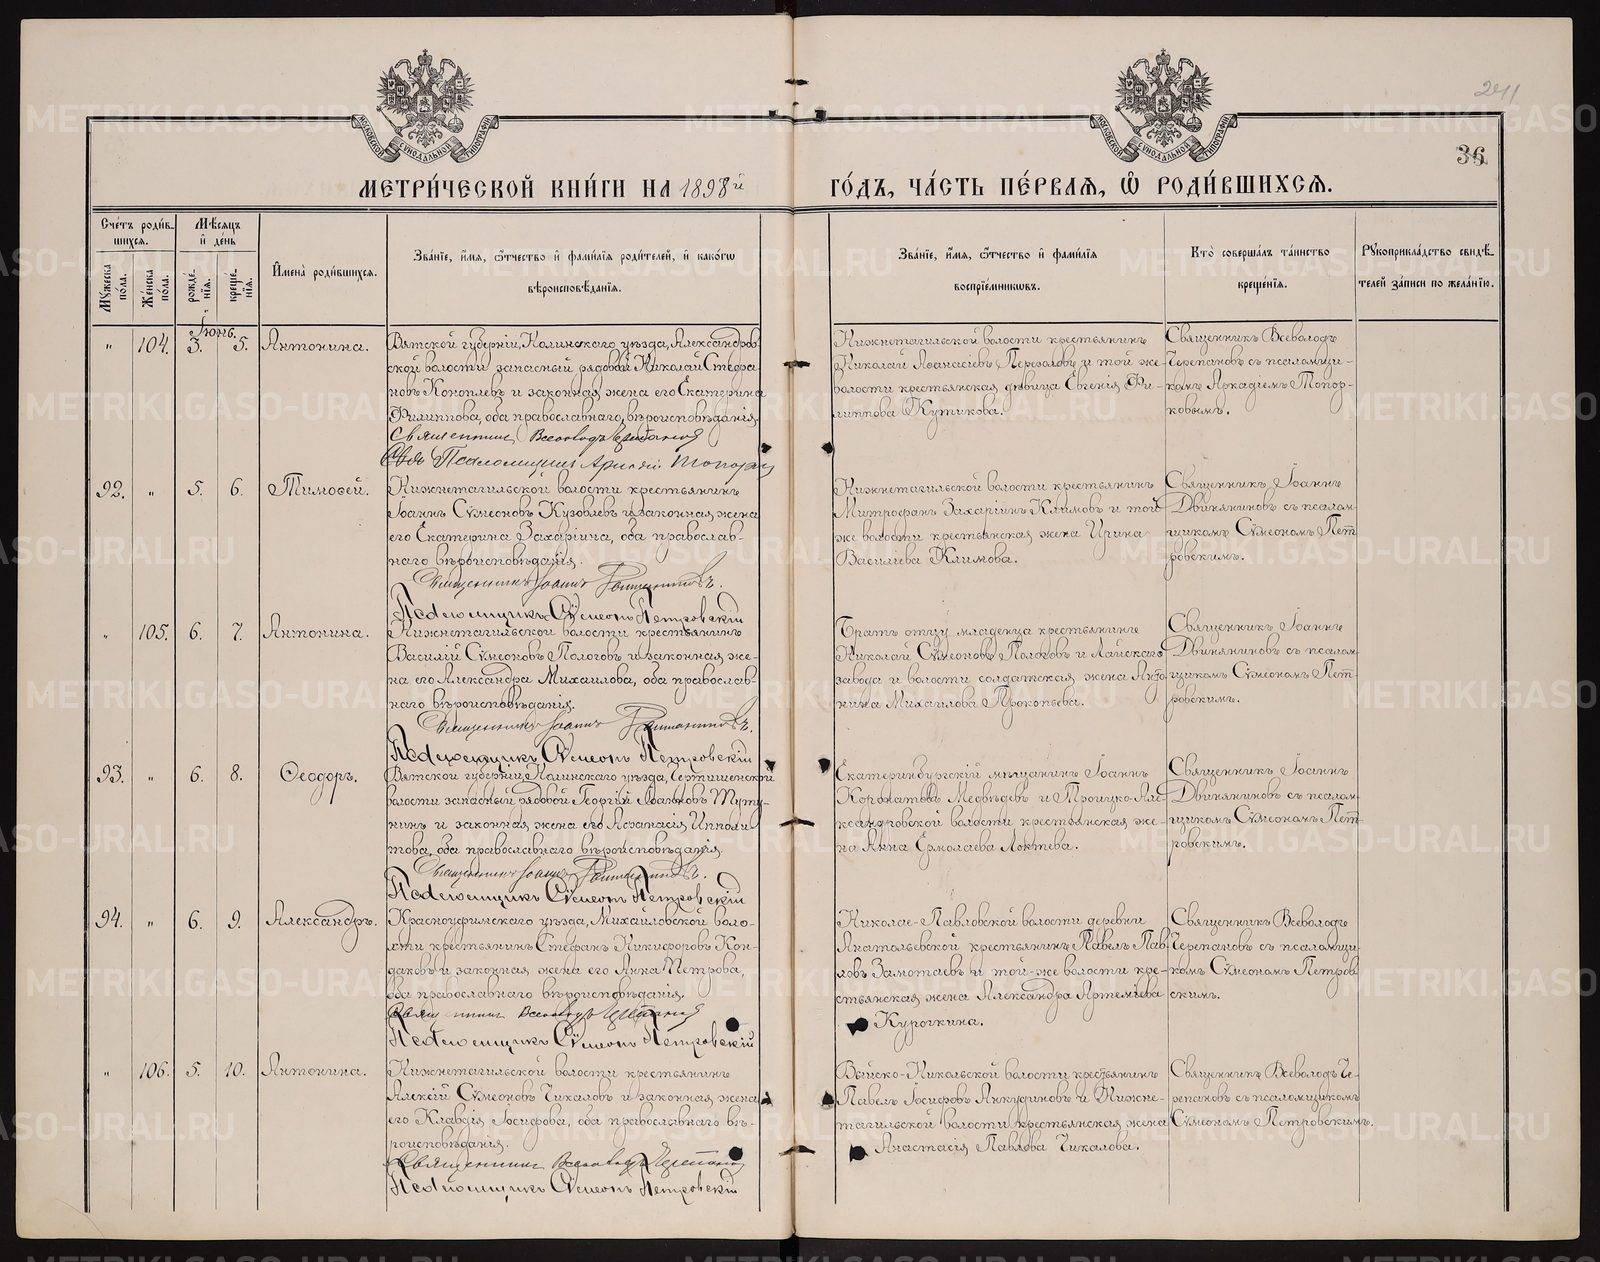 МОСКОВСКОЙ СѴНОДАЛЬНОЙ ТИПОГРАФІИ
МОСКОВСКОЙ СѴНОДАЛЬНОЙ ТИПОГРАФІИ
241
36
МЕТРИ́ЧЕСКОЙ КНИ́ГИ НА 1898й ГО́ДЪ, ЧА́СТЬ ПЕ́РВАЯ, Ѡ РОДИ́ВШИХСЯ.
Сче́тъ роди́в-
шихся.
Мѣ́сяцъ
и҆ де́нь
Му́жеска по́ла.
Же́нска по́ла.
рожде́-
нїя.
креще́-
нїя.
И҆мена̀ роди́вшихся.
Зва́нїе, и҆́мя, ѻ҆́тчество и҆ фамı́лїя роди́телей, и҆ како́гѡ
вѣроисповѣ́данїя.
Зва́нїе, и҆́мя, ѻ҆́тчество и҆ фамı́лїя
воспрїе́мниковъ.
Кто̀ соверша́лъ та́инство
креще́нїя.
Рꙋкоприкла́дство свидѣ́-
телей за́писи по жела́нїю.
Іюнь.
" 104. 3. 5. Антонина.
Вятской губерніи, Нолинскаго уѣзда, Александров-
ской волости запасный рядовой Николай Стефа-
новъ Коноплевъ и законная жена его Екатерина
Филиппова, оба православнаго вѣроисповѣданія.
Священникъ Всеволодъ Черепановъ
Псаломщикъ Аркадій Топорк
Нижнетагильской волости крестьянинъ
Николай Аѳанасіевъ Перезоловъ и той же-
волости крестьянская дѣвица Евгенія Фи-
липпова Кутикова.
Священникъ Всеволодъ
Черепановъ съ псаломщи-
комъ Аркадіемъ Топор-
ковымъ.
92. " 5. 6. Тимоѳей.
Нижнетагильской волости крестьянинъ
Іоаннъ Сѵмеоновъ Кузовлевъ и законная жена
его Екатерина Захаріина, оба православ-
наго вѣроисповѣданія.
Священникъ Іоаннъ Двиняниновъ.
Псаломщикъ Сѵмеонъ Петровскій
Нижнетагильской волости крестьянинъ
Митрофанъ Захаріинъ Климовъ и той
же волости крестьянская жена Ирина
Василіева Климова.
Священникъ Іоаннъ
Двиняниновъ съ псалом-
щикомъ Сѵмеономъ Пет-
ровскимъ.
" 105. 6. 7. Антонина.
Нижнетагильской волости крестьянинъ
Василій Сѵмеоновъ Пологовъ и законная же-
на его Александра Михаилова, оба православ-
наго вѣроисповѣданія.
Священникъ Іоаннъ Двиняниновъ.
Псаломщикъ Сѵмеонъ Петровскій
Братъ отцу младенца крестьянинъ
Николай Сѵмеоновъ Пологовъ и Лайскаго
завода и волости солдатская жена Анто-
нина Михаилова Прокопьева.
Священникъ Іоаннъ
Двиняниновъ съ псалом-
щикомъ Сѵмеономъ Пет-
ровскимъ.
93. " 6. 8. Ѳеодоръ.
Вятской губерніи, Нолинскаго уѣзда, Чертищенской
волости запасный рядовой Георгій Іоанновъ
и законная жена его Аѳанасія Ипполи-
това, оба православнаго вѣроисповѣданія.
Священникъ Іоаннъ Двиняниновъ.
Псаломщикъ Сѵмеонъ Петровскій
Екатеринбургскій мѣщанинъ Іоаннъ
Коронатовъ Медвѣдевъ и Троицко-Але-
ксандровской волости крестьянская же-
на Анна Ермолаева Локтева.
Священникъ Іоаннъ
Двиняниновъ съ псалом-
щикомъ Сѵмеономъ Пет-
ровскимъ.
94. " 6. 9. Александръ.
Красноуфимскаго уѣзда, Михайловской воло-
сти крестьянинъ Стефанъ Никифоровъ Кон-
даковъ и законная жена его Анна Петрова,
оба православнаго вѣроисповѣданія.
Священникъ Всеволодъ Черепановъ
Псаломщикъ Сѵмеонъ Петровскій
Николае-Павловской волости деревни
Анатольевской крестьянинъ Павелъ Пав-
ловъ Замотаевъ и той-же волости кре-
стьянская жена Александра Артеміева
Курочкина.
Священникъ Всеволодъ
Черепановъ съ псаломщи-
комъ Сѵмеономъ Петров-
скимъ.
" 106. 5. 10. Антонина.
Нижнетагильской волости крестьянинъ
Алексій Сѵмеоновъ Чикаловъ и законная жена
его Клавдія Іосифова, оба православнаго вѣ-
роисповѣданія.
Священникъ Всеволодъ Черепановъ
Псаломщикъ Сѵмеонъ Петровскій
Выйско-Никольской волости крестьянинъ
Павелъ Іосифовъ Анкудиновъ и Нижне-
тагильской волости крестьянская жена
Анастасія Павлова Чикалова.
Священникъ Всеволодъ Че-
репановъ съ псаломщикомъ
Сѵмеономъ Петровскимъ.
METRIKI.GASO-URAL.RU